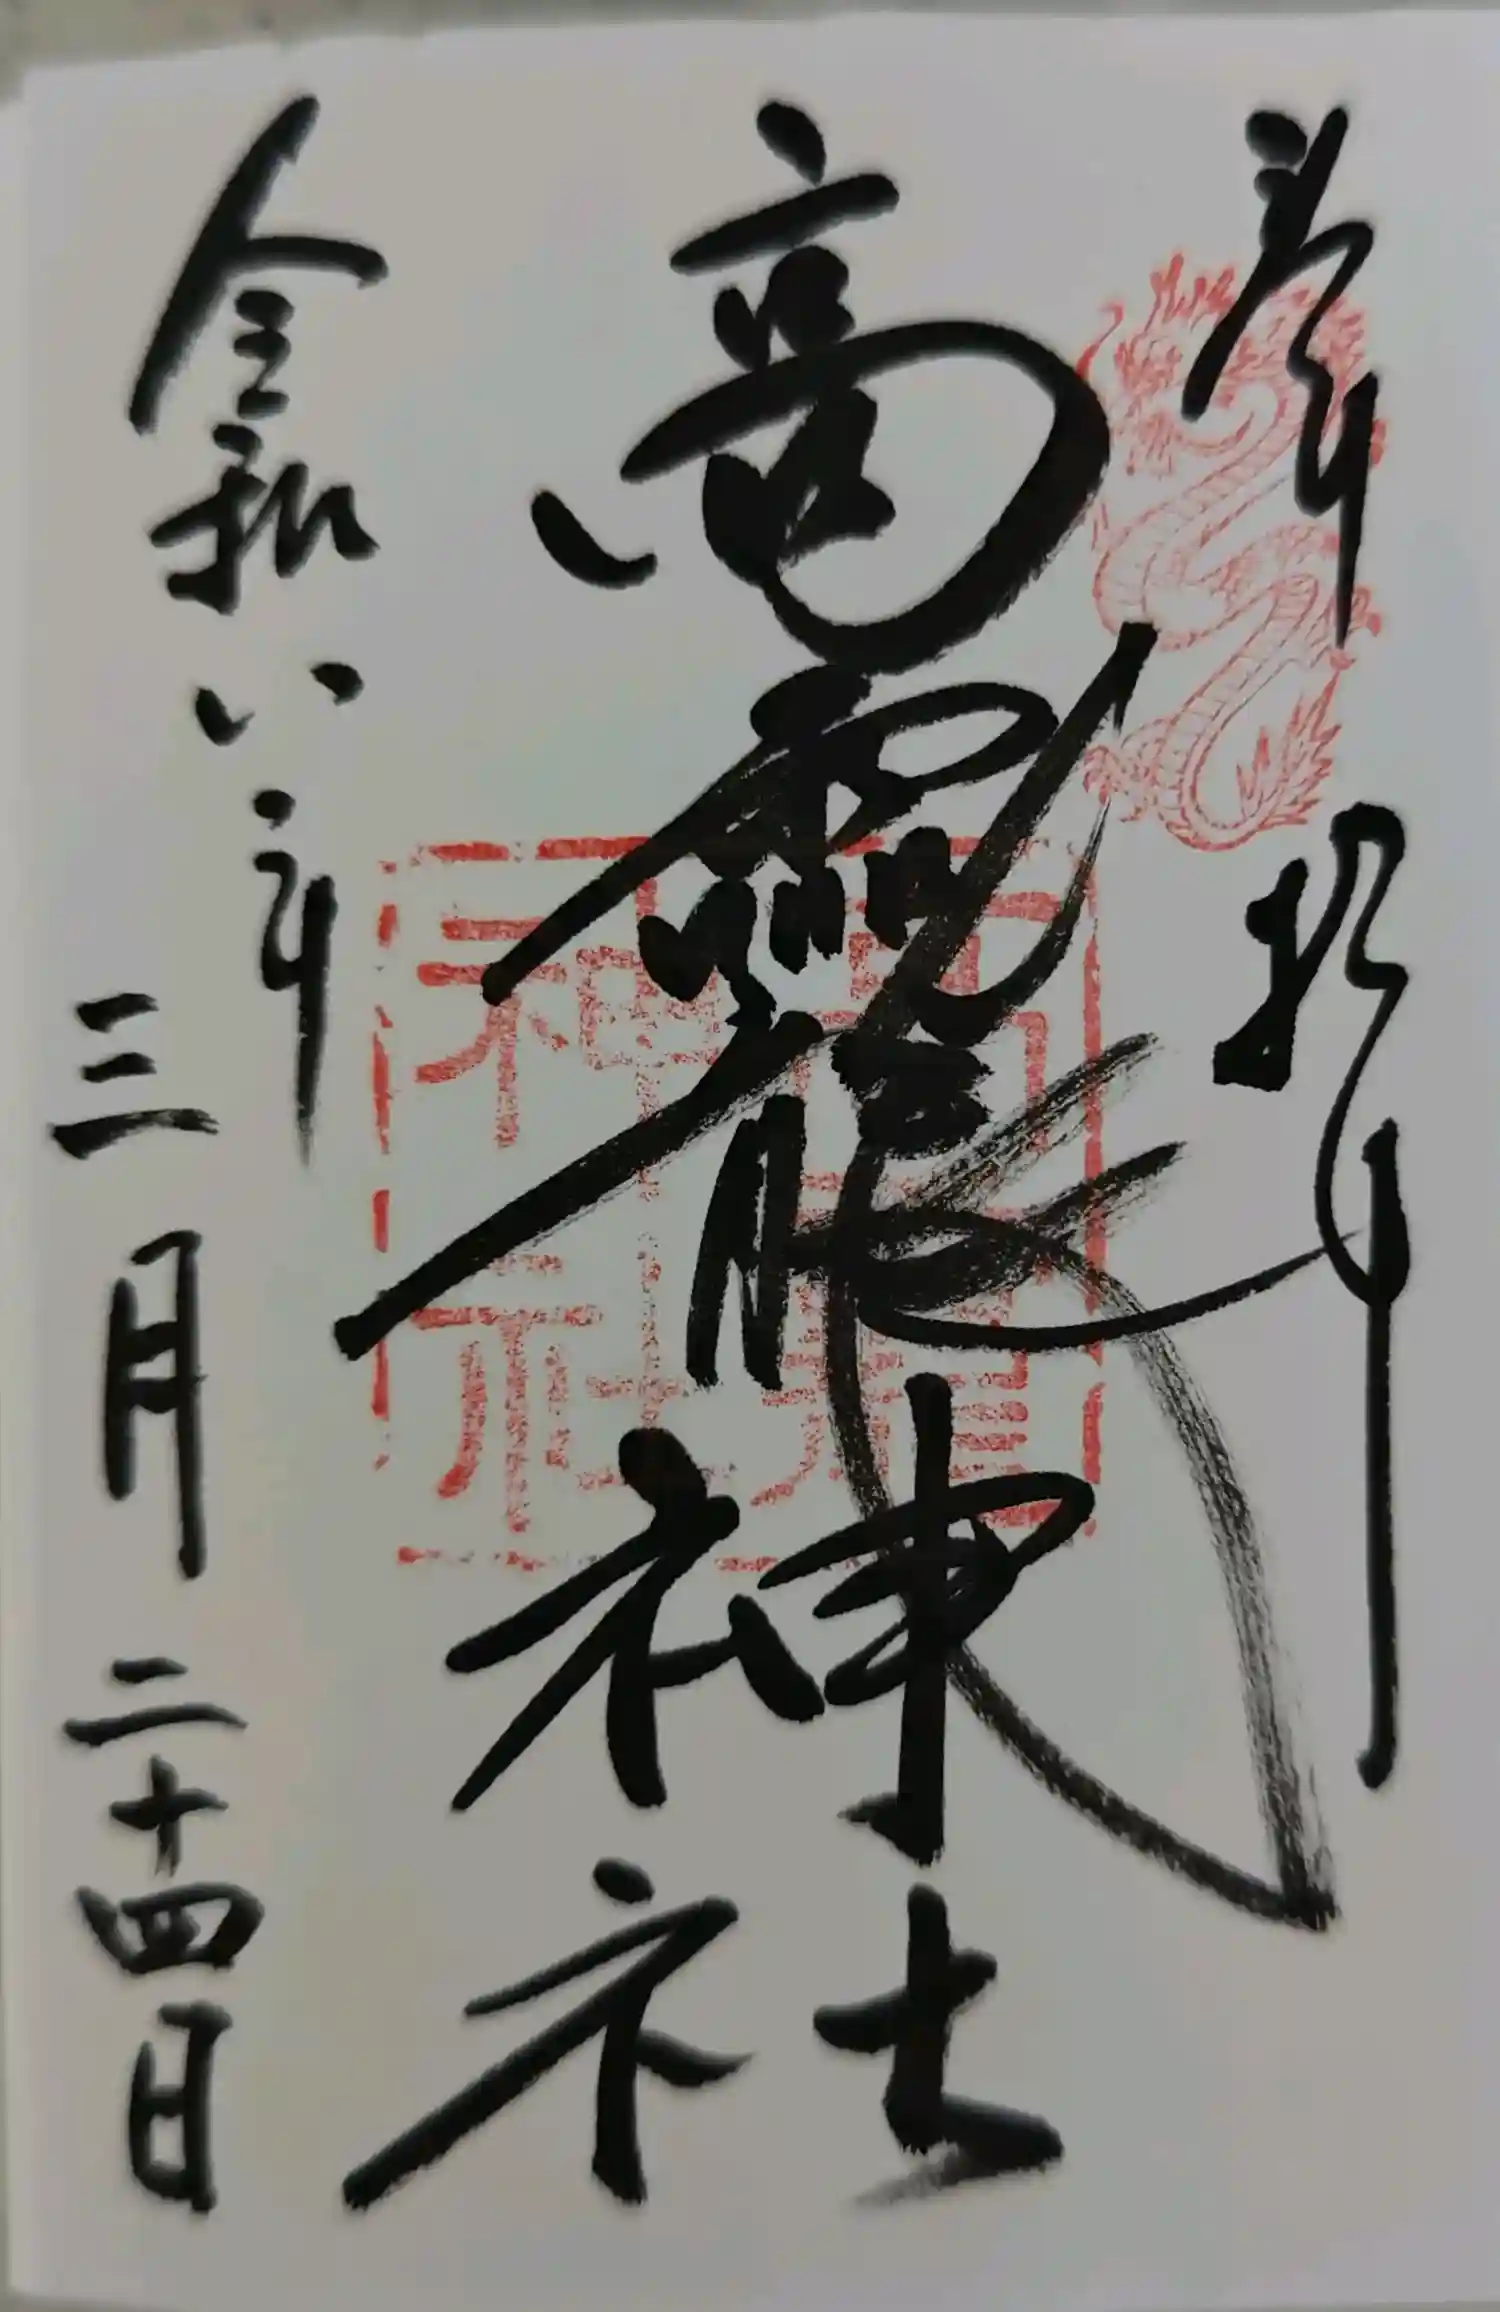 奉拝
高龗神社
令和八年
三月二十四日
高龗
神社